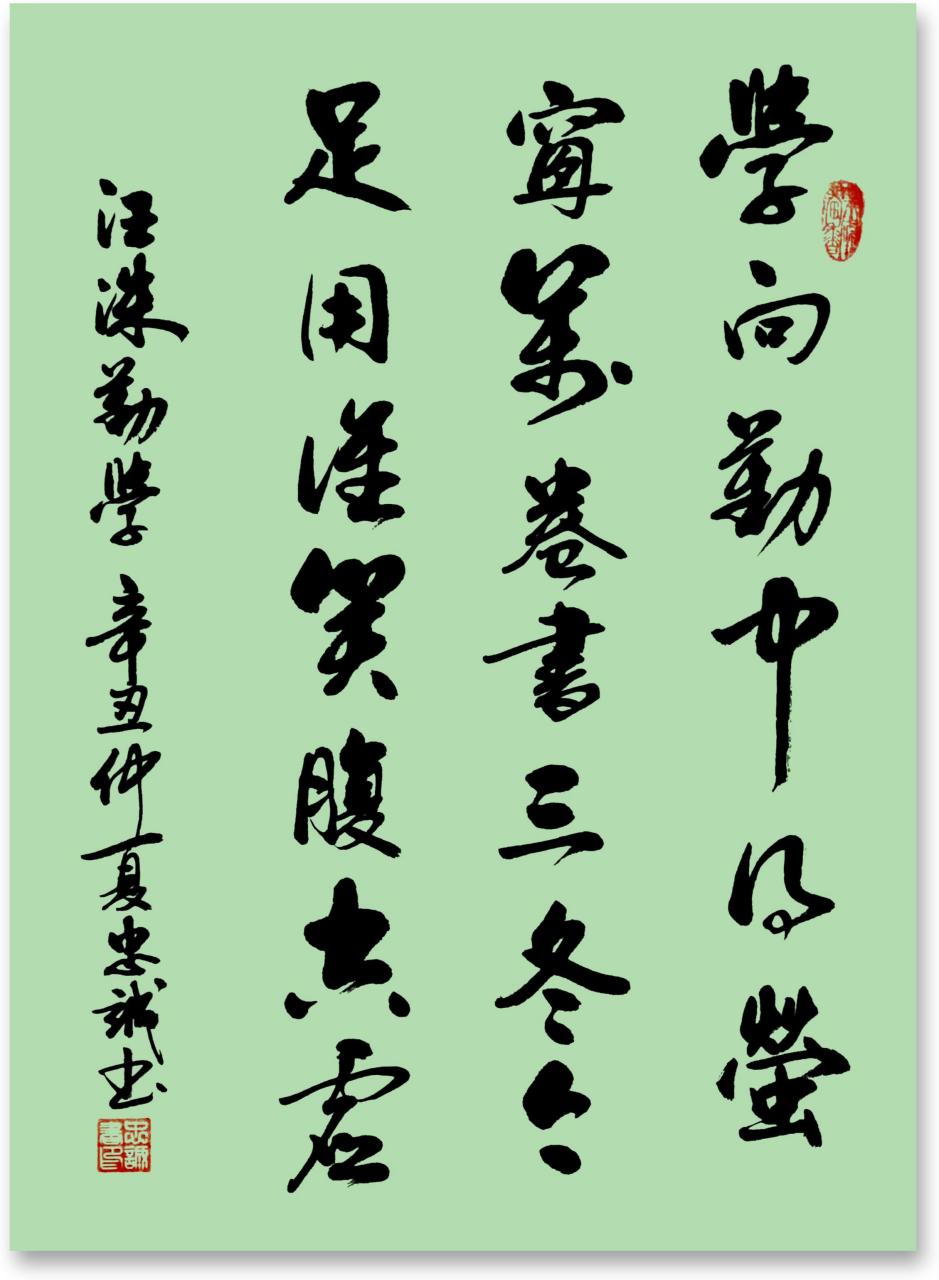 學向勤中得螢
窗萬卷書三冬今
足用誰笑腹空虛
汪洙勤學 辛丑仲夏忠誠书
忠誠書印